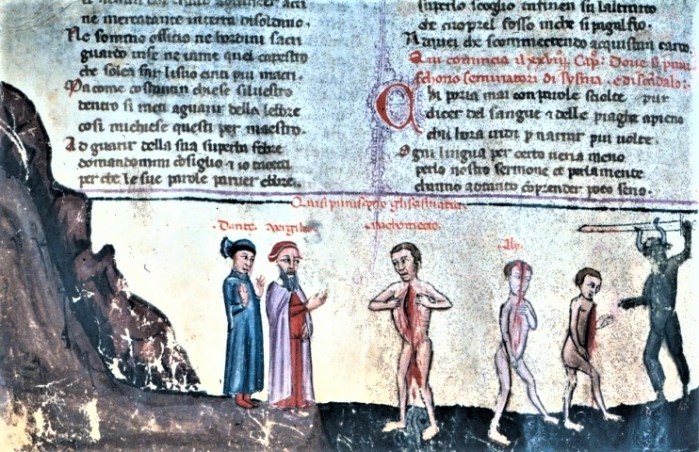 ne mercatante interra disoldano.
Ne sommo officio ne hordini sacri
guardo inse ne iame quel capestro
che solea far lisuo cinti piu macri.
Ma come costantin chiese silvestro
dentro si aguarir della lebbre
cosi michiese questi per maestro.
Ad guarir della sua superba febre
domandommi cosiglio & io
per che le sue parole parver ebbre.
superlo scoglio infin in su laltrarco
che cuoprel fosso inche si pagalfio
A quei che scommectendo acquistan carco
Qui comincia il xxviij. Cap. Dove si puni
schono seminatori di scisma. e discandalo.
Chi poria mai con parole sciolte pur
dicer del sangue & delle piaghe apieno
chi hora vidi p narrar piu volte.
Ogni lingua per certo verria meno
perlo nostro sermone & perlamente
channo coprender poco seno.
Dante. Vergilio
Machometto.
Aly.